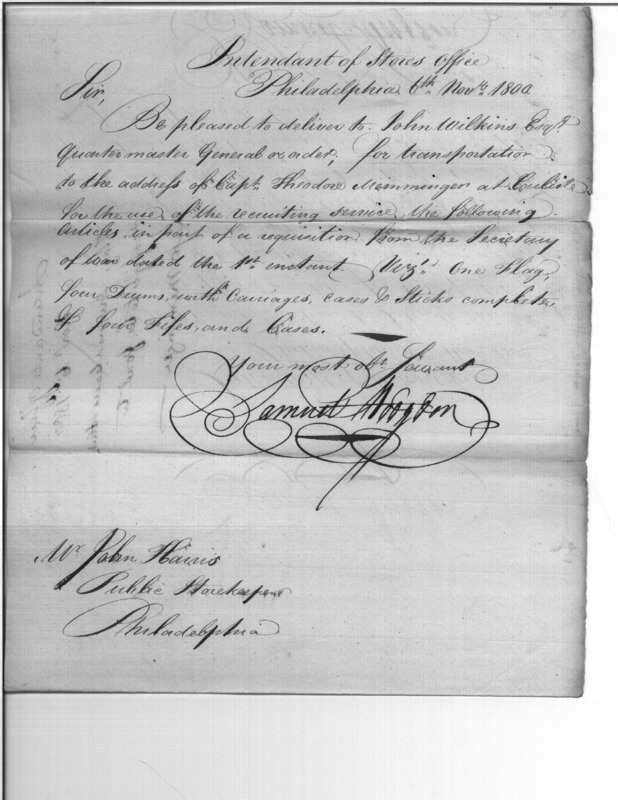 Intendant of Stores Office
Philadelphia 6th Novr 1800
Sir,
Be pleased to deliver to John Wilkins Esqr
Quartermaster General or order, for transportation
to the address of Capt Theodore Memminger at Carlisle
for the use of the recruiting service, the following
Articles, in part of a requisition from the Secretary
of War dated the 1st instant Vizt One Flag,
four Drums, with Carriages, cases & Sticks complete,
& four Fifes, and Cases.
Your most obt Servant
Samuel Hodgdon
Mr John Harris
Public Storekeeper
Philadelphia